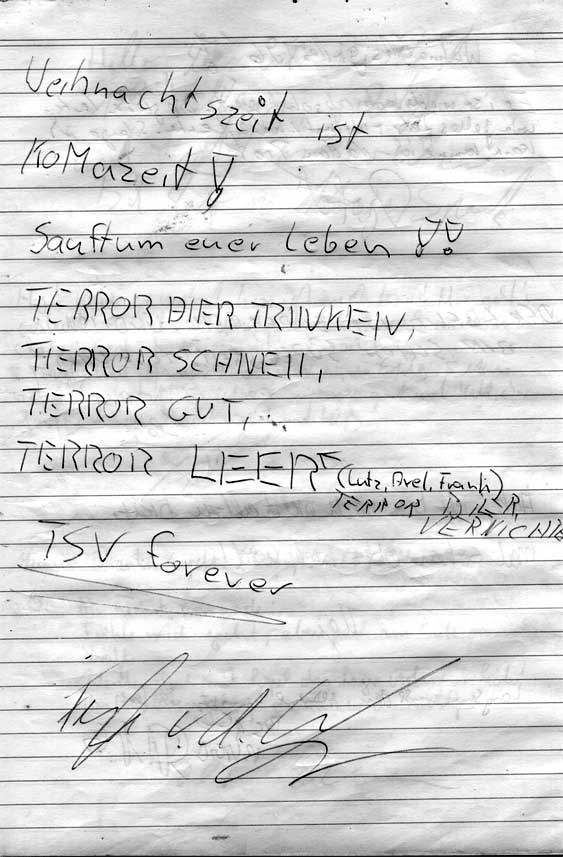 Weihnachtszeit ist
KoMazeit !
Sauftum euer Leben !!
TERROR BIER TRINKEN,
TERROR SCHNELL,
TERROR GUT,..
TERROR LEER
(Lutz, Axel, Frank)
TERROR BIER
VERNICHTE
TSV forever